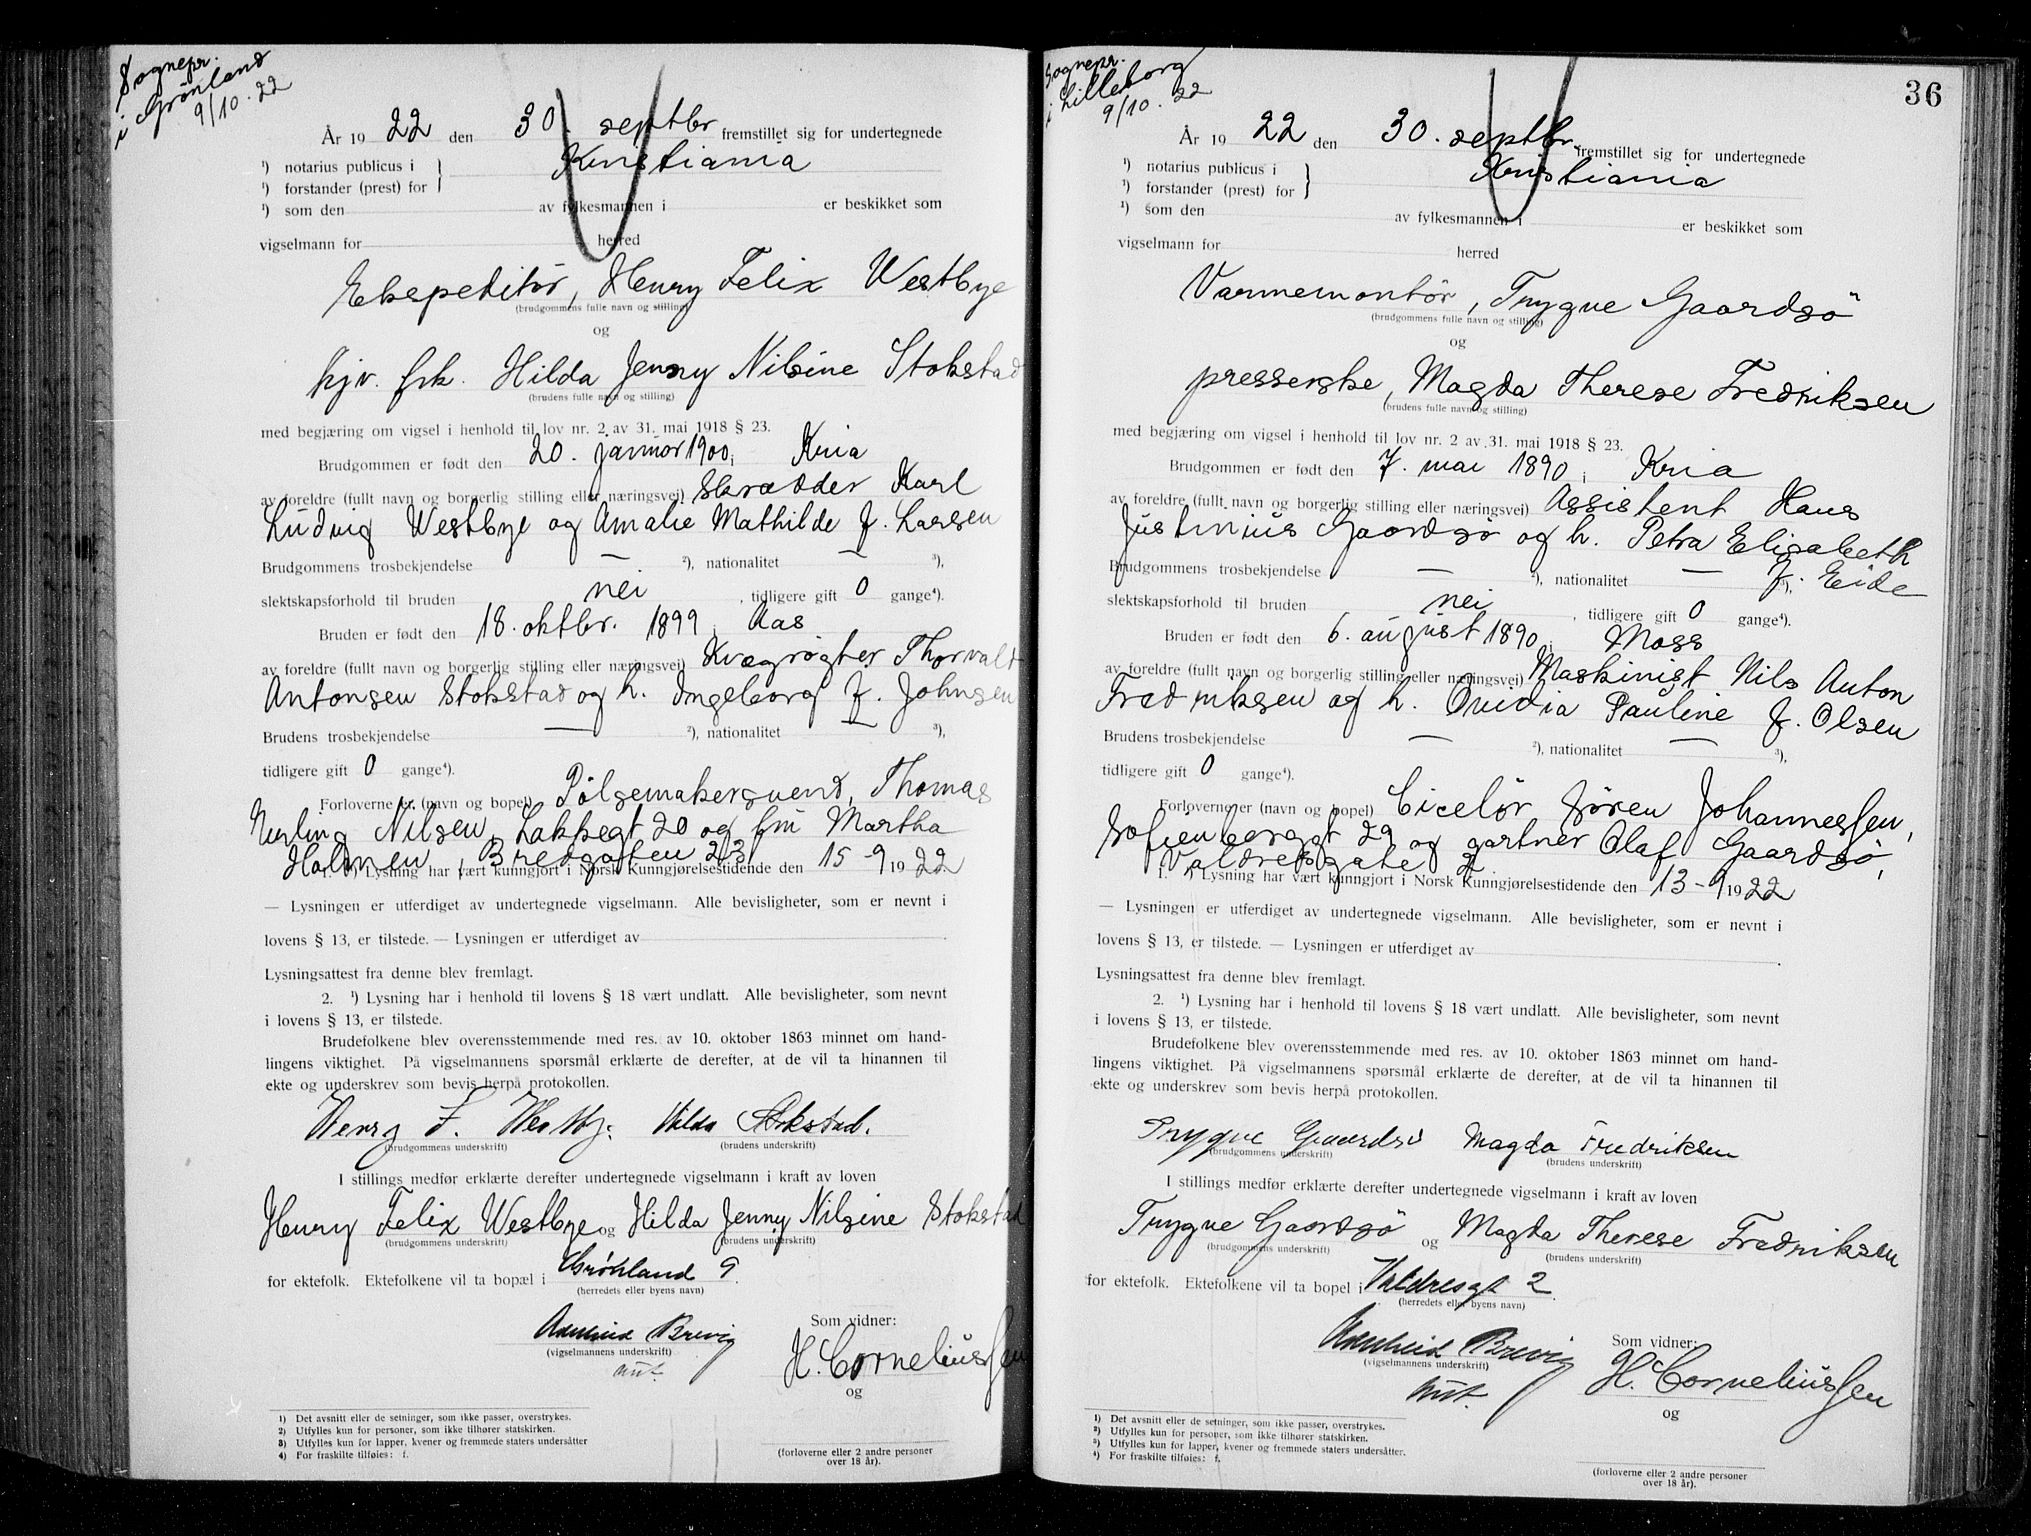 Sognepr.
i Grönland
9/10. 22
År 1922 den 30. septbr fremstillet sig for undertegnede
¹) notarius publicus i } Kristiania
¹) forstander (prest) for
¹) som den av fylkesmannen i er beskikket som
vigselmann for herred
Ekspeditør, Henry Felix Westbye
(brudgommens fulle navn og stilling)
og
hjv. frk. Hilda Jenny Nilsine Stokstad
(brudens fulle navn og stilling)
med begjæring om vigsel i henhold til lov nr. 2 av 31. mai 1918 § 23.
Brudgommen er født den 20. januar 1900, i Kria
av foreldre (fullt navn og borgerlig stilling eller næringsvei) skrædder Karl
Ludvig Westbye og Amalie Mathilde f. Larsen
Brudgommens trosbekjendelse — ²), nationalitet — ³),
slektskapsforhold til bruden nei , tidligere gift 0 gange⁴).
Bruden er født den 18. oktbr. 1899 i Aas
av foreldre (fullt navn og borgerlig stilling eller næringsvei) Kvægrøgter Thorvald
Antonsen Stokstad og h. Ingeborg f. Johnsen
Brudens trosbekjendelse — ²), nationalitet — ³),
tidligere gift 0 gange⁴).
Forloverne er (navn og bopel) Pølsemakersvend, Thomas
Erling Nilsen, Lakkegt 20 og fru Martha
Halmen, Bredgaten 23
1. ¹) Lysning har vært kunngjort i Norsk Kunngjørelsestidende den 15-9 1922.
— Lysningen er utferdiget av undertegnede vigselmann. Alle bevisligheter, som er nevnt i
lovens § 13, er tilstede. — Lysningen er utferdiget av
Lysningsattest fra denne blev fremlagt.
2. ¹) Lysning har i henhold til lovens § 18 vært undlatt. Alle bevisligheter, som nevnt
i lovens § 13, er tilstede.
Brudefolkene blev overensstemmende med res. av 10. oktober 1863 minnet om hand-
lingens viktighet. På vigselmannens spørsmål erklærte de derefter, at de vil ta hinannen til
ekte og underskrev som bevis herpå protokollen.
Henry F. Westby. Hilda Stokstad.
(brudgommens underskrift) (brudens underskrift)
I stillings medfør erklærte derefter undertegnede vigselmann i kraft av loven
Henry Felix Westbye og Hilda Jenny Nilsine Stokstad
(brudgommens underskrift) (brudens underskrift)
for ektefolk. Ektefolkene vil ta bopæl i Grønland 9.
(herredets eller byens navn)
Brevig
(vigselmannens underskrift)
aut.
Som vidner:
H. Corneliussen
og
¹) Det avsnitt eller de setninger, som ikke passer, overstrykes.
²) Utfylles kun for personer, som ikke tilhører statskirken.
³) Utfylles kun for lapper, kvener og fremmede staters undersåtter
⁴) For fraskilte tilføies: f.
(forloverne eller 2 andre personer
over 18 år).
Sognepr.
i Lilleborg
9/10. 22
36
År 1922 den 30. septbr. fremstillet sig for undertegnede
¹) notarius publicus i } Kristiania
¹) forstander (prest) for
¹) som den av fylkesmannen i er beskikket som
vigselmann for herred
Varmemontør, Trygve Gaardsö
(brudgommens fulle navn og stilling)
og
presserske, Magda Therese Fredriksen
(brudens fulle navn og stilling)
med begjæring om vigsel i henhold til lov nr. 2 av 31. mai 1918 § 23.
Brudgommen er født den 7. mai 1890, i Kria
av foreldre (fullt navn og borgerlig stilling eller næringsvei) Assistent Hans
Justinius Gaardsö og h. Petra Elisabeth
f. Eide
Brudgommens trosbekjendelse — ²), nationalitet — ³),
slektskapsforhold til bruden nei , tidligere gift 0 gange⁴).
Bruden er født den 6. august 1890, i Moss
av foreldre (fullt navn og borgerlig stilling eller næringsvei) Maskinist Nils Anton
Fredriksen og h. Ovidia Pauline f. Olsen
Brudens trosbekjendelse — ²), nationalitet — ³),
tidligere gift 0 gange⁴).
Forloverne er (navn og bopel) Ciselør Jören Johannessen,
Sofienberggt 29 og gartner Olaf Gaardsö,
Valdresgate 2
1. ¹) Lysning har vært kunngjort i Norsk Kunngjørelsestidende den 13-9 1922
— Lysningen er utferdiget av undertegnede vigselmann. Alle bevisligheter, som er nevnt i
lovens § 13, er tilstede. — Lysningen er utferdiget av
Lysningsattest fra denne blev fremlagt.
2. ¹) Lysning har i henhold til lovens § 18 vært undlatt. Alle bevisligheter, som nevnt
i lovens § 13, er tilstede.
Brudefolkene blev overensstemmende med res. av 10. oktober 1863 minnet om hand-
lingens viktighet. På vigselmannens spørsmål erklærte de derefter, at de vil ta hinannen til
ekte og underskrev som bevis herpå protokollen.
Trygve Gaardsø Magda Fredriksen
(brudgommens underskrift) (brudens underskrift)
I stillings medfør erklærte derefter undertegnede vigselmann i kraft av loven
Trygve Gaardsö og Magda Therese Fredriksen
(brudgommens underskrift) (brudens underskrift)
for ektefolk. Ektefolkene vil ta bopel i Valdresgt 2
(herredets eller byens navn)
Brevig
(vigselmannens underskrift)
aut.
Som vidner:
H. Corneliussen
og
¹) Det avsnitt eller de setninger, som ikke passer, overstrykes.
²) Utfylles kun for personer, som ikke tilhører statskirken.
³) Utfylles kun for lapper, kvener og fremmede staters undersåtter.
⁴) For fraskilte tilføies: f.
(forloverne eller 2 andre personer
over 18 år).